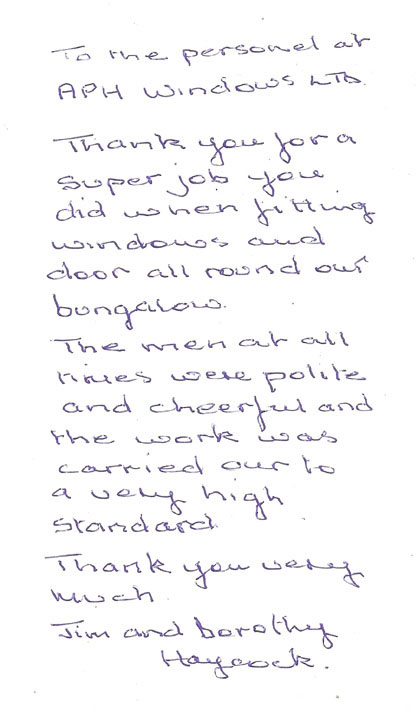 To the personel at
APH Windows LTD.
Thank you for a
super job you
did when fitting
windows and
door all round our
bungalow.
The men at all
times were polite
and cheerful and
the work was
carried out to
a very high
standard.
Thank you very
much
Jim and Dorothy
Haycock.